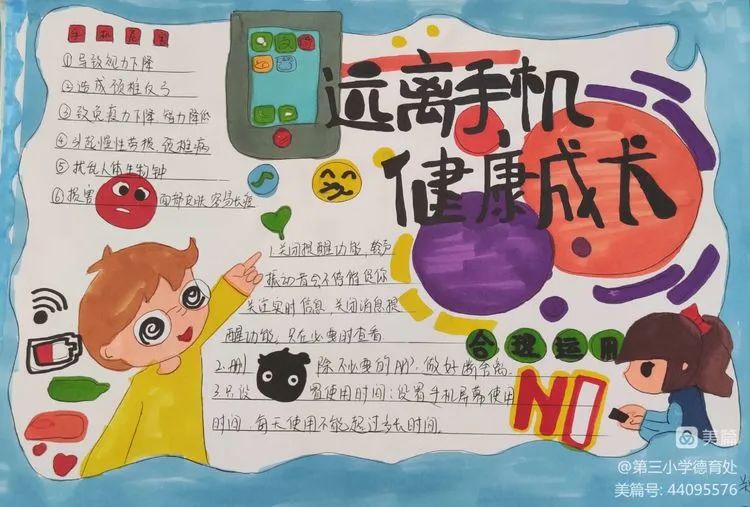 远离手机
健康成长
手机危害
①导致视力下降
②造成颈椎反弓
③致免疫力下降 智力降低
④引起慢性劳损 颈椎病
⑤扰乱人体生物钟
⑥损害 面部皮肤 容易长痘
合理运用
1.关闭提醒功能,铃声
振动音会不停催促你
关注实时信息,关闭消息提
醒功能,只在必要时查看
2.删 除不必要的APP:做好断舍离
3.只设 置使用时间:设置手机屏幕使用
时间,每天使用不能超过多长时间。
NO
美篇
@第三小学德育处
美篇号: 44095576